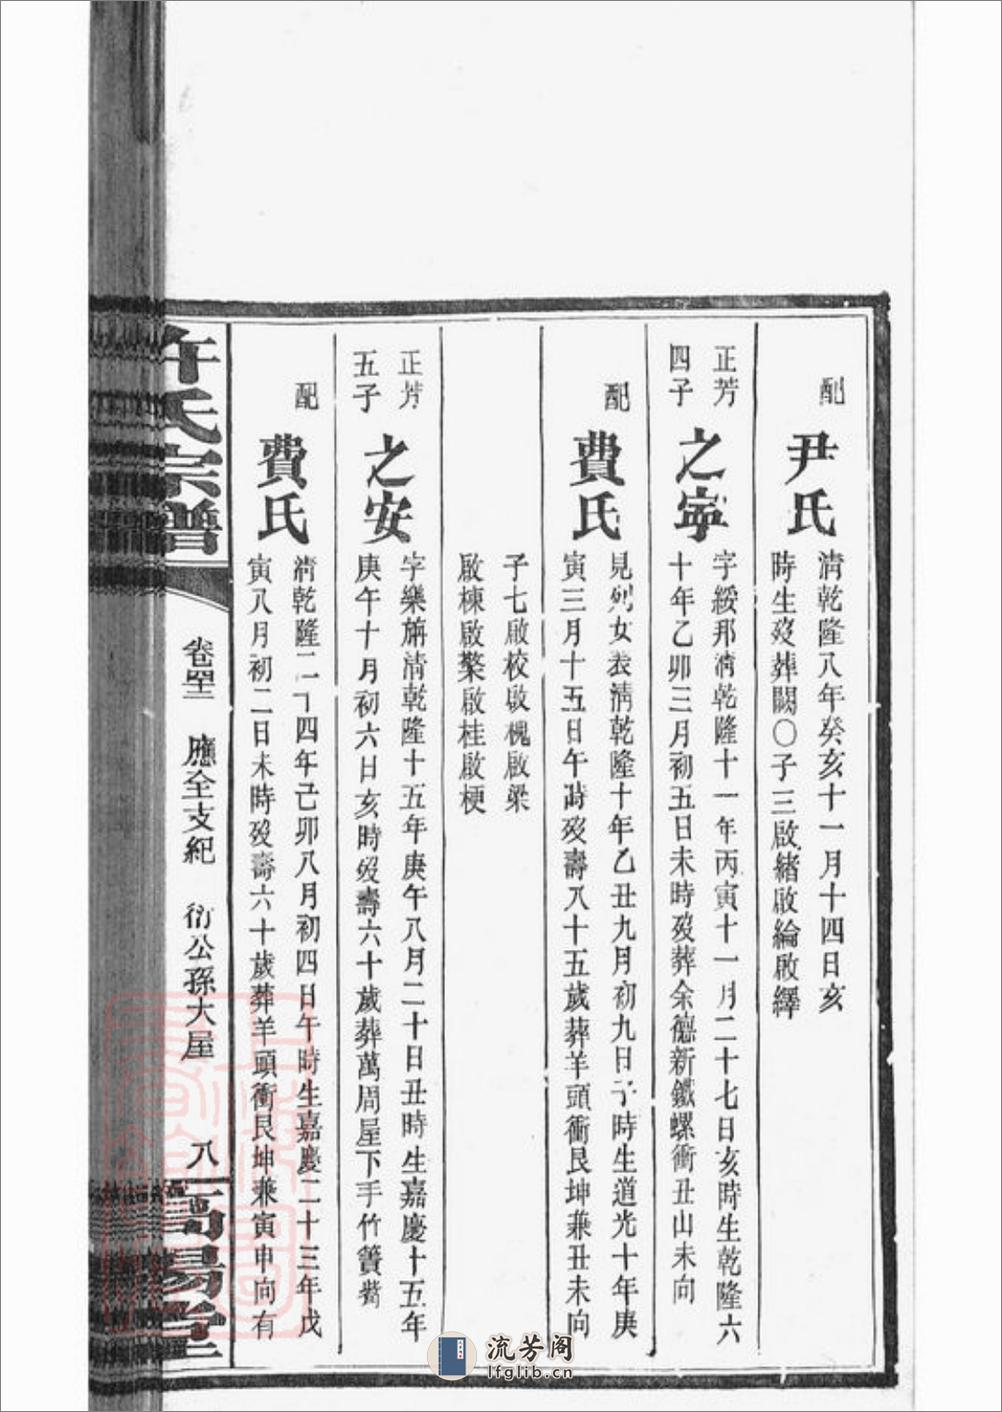 配
尹氏
清乾隆八年癸亥十一月十四日亥
時生歿葬闕〇子三啟緒啟綸啟繹
正芳
四子
之寧
字綏邦清乾隆十一年丙寅十一月二十七日亥時生乾隆六
十年乙卯三月初五日未時歿葬余德新鐵螺衝丑山未向
配
費氏
見列女表清乾隆十年乙丑九月初九日子時生道光十年庚
寅三月十五日午時歿壽八十五歲葬羊頭衝艮坤兼丑未向
子七啟校啟槐啟梁
啟棟啟棨啟桂啟梗
正芳
五子
之安
字樂旃清乾隆十五年庚午八月二十日丑時生嘉慶十五年
庚午十月初六日亥時歿壽六十歲葬萬周屋下手竹簧觜
配
費氏
清乾隆二十四年己卯八月初四日午時生嘉慶二十三年戊
寅八月初二日未時歿壽六十歲葬羊頭衝艮坤兼寅申向有
許氏宗譜
卷四十二 應全支紀 衍公孫大屋
八
高陽堂
流芳阁
lfglib.cn